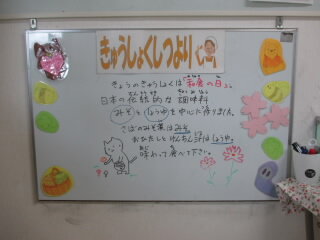 きゅうしょくしつより
きょうのきゅうしょくは「和食の日」。
日本の伝統的な調味料
みそとしょうゆを中心に作りました。
さばのみそ煮はみそ、
おひたしとけんちん汁はしょうゆ。
味わって食べて下さい。